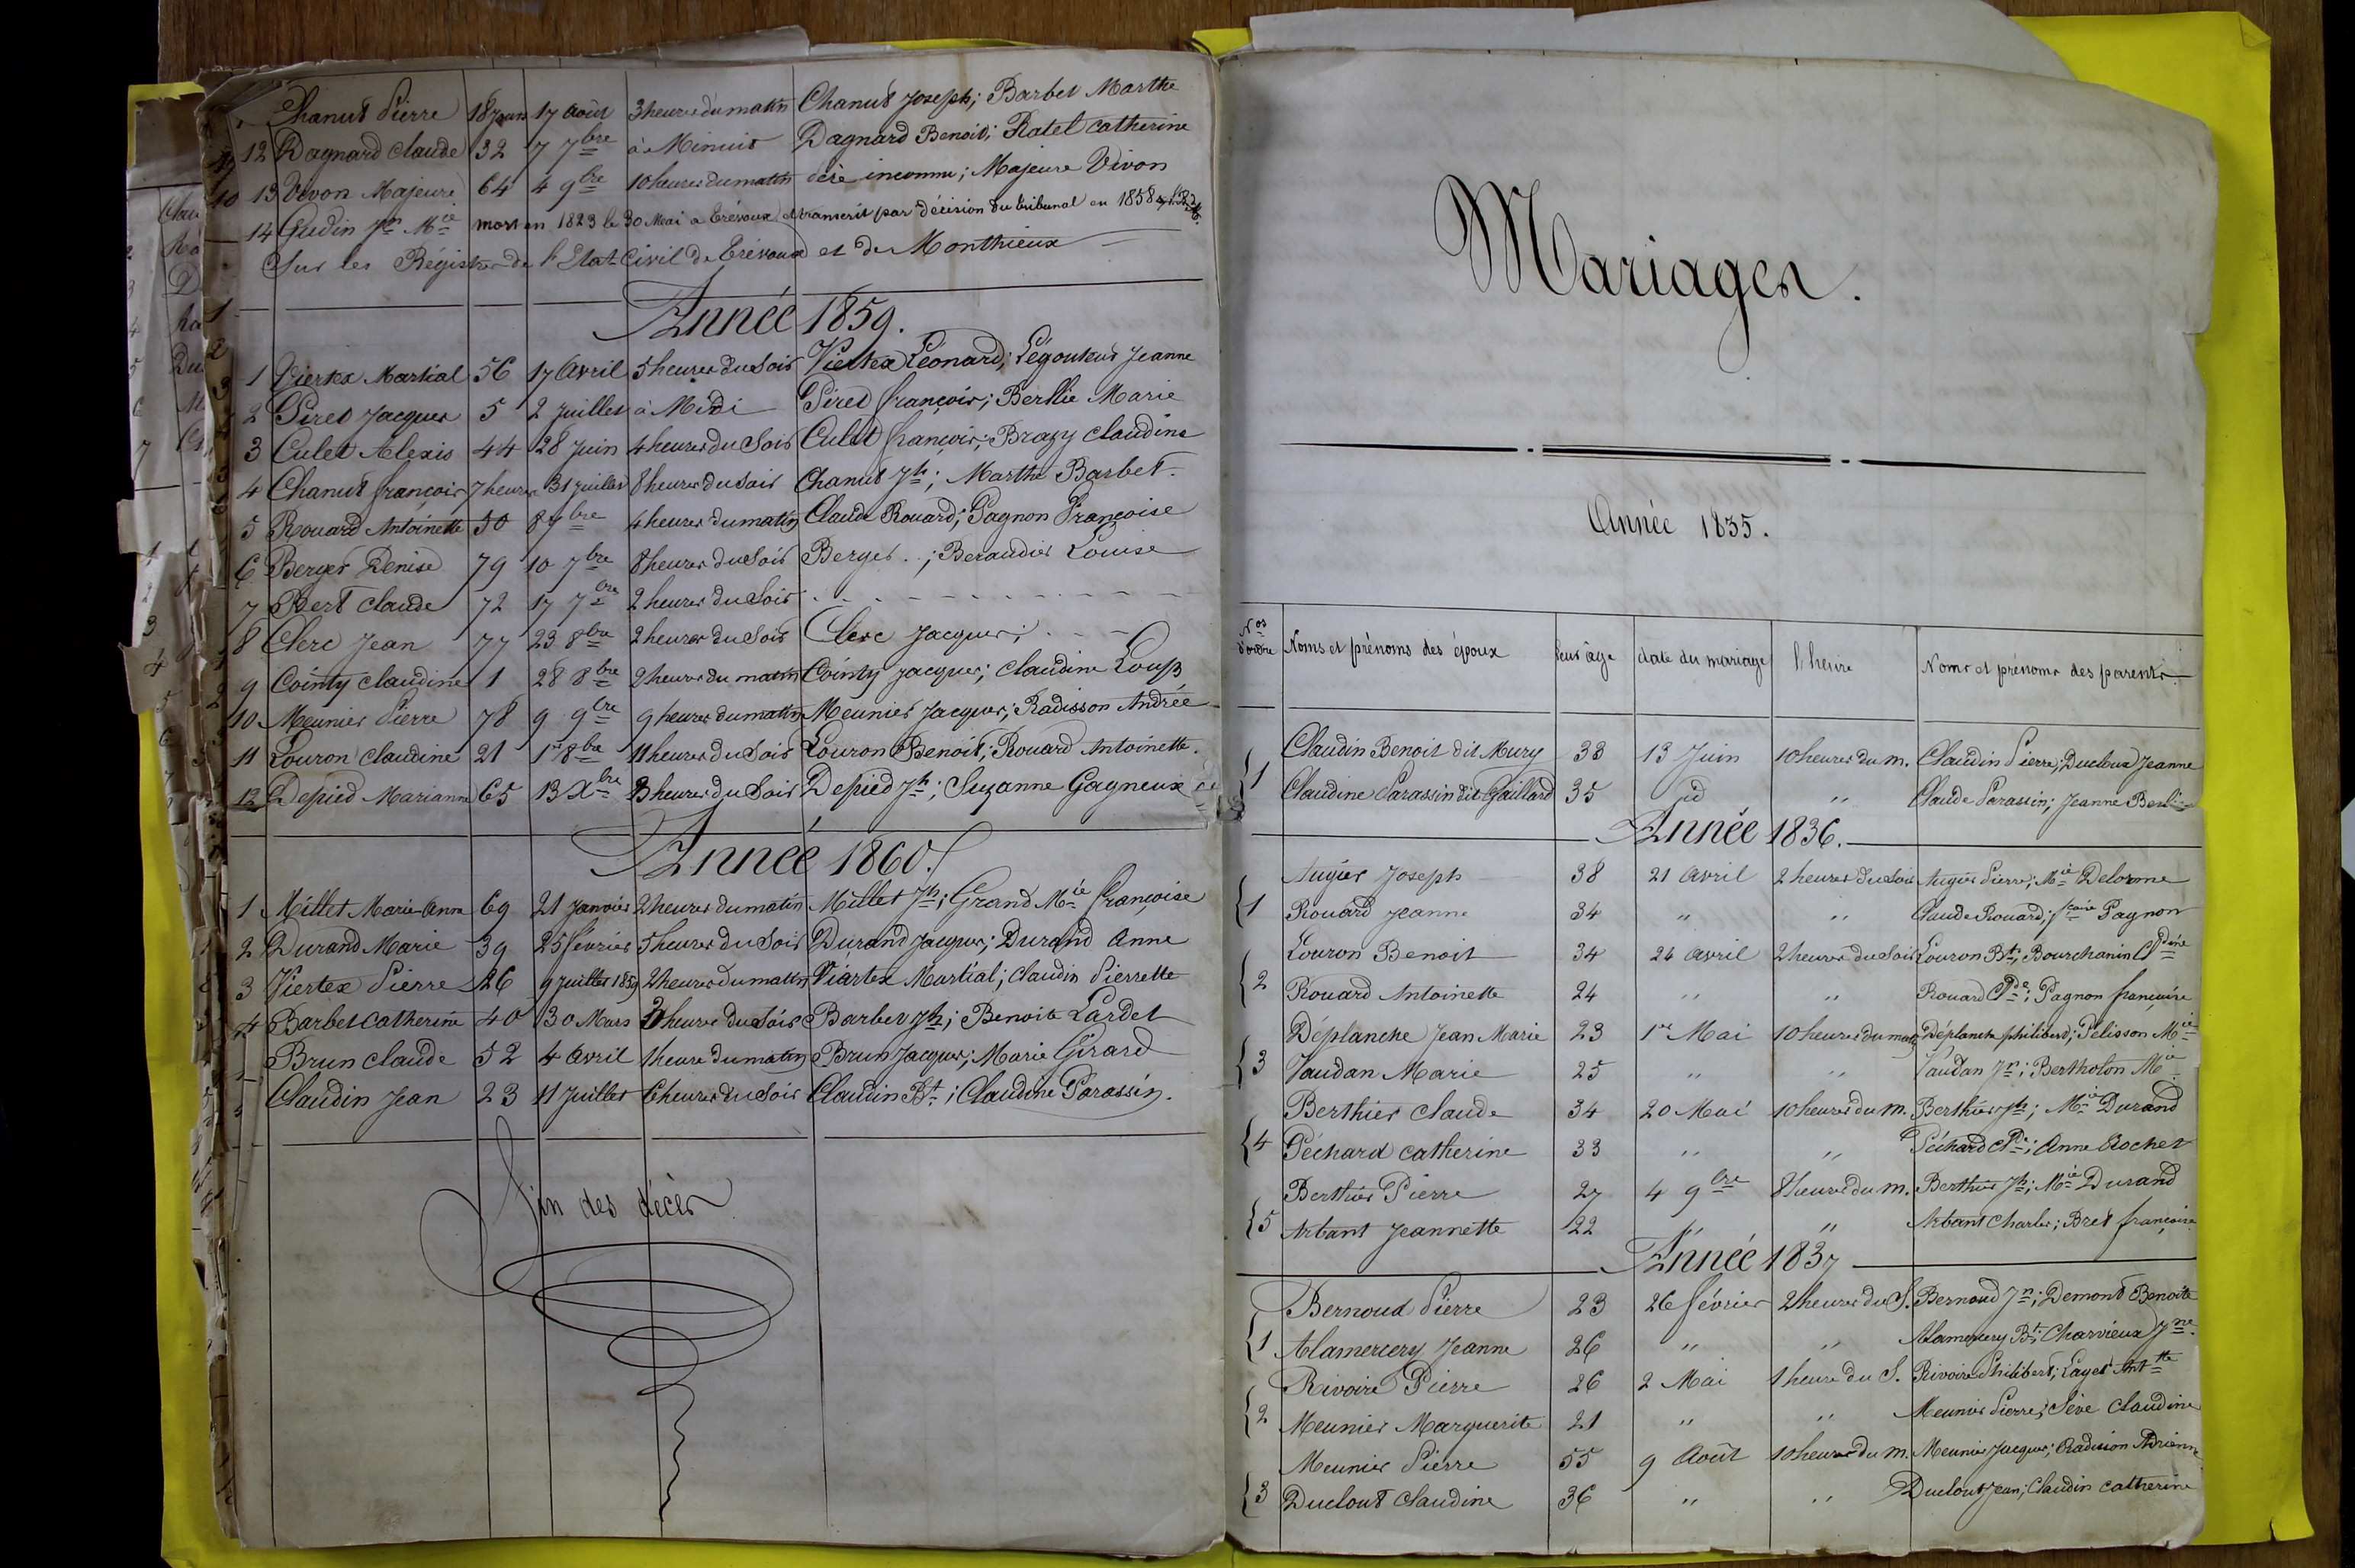 Chanut Pierre 18 jours 17 Août 3 heures du matin Chanut Joseph; Barbet Marthe
12 Dagnard Claude 32 7 7bre à Minuit Dagnard Benoit; Ratel Catherine
13 Vivon Majeure 64 4 9bre 10 heures du matin père inconnu; Majeure Vivon
14 Gudin Jn Mie mort en 1823 le 30 Mai à Trévoux et transcrit par décision du tribunal en 1858
Sur les Régistres de l'Etat Civil de Trévoux et de Monthieux
Année 1859.
1 Viertex Martial 56 17 Avril 5 heures du Soir Viertex Léonard; Légouteux Jeanne
2 Piret Jacques 5 2 Juillet à Midi Piret françois; Berllie Marie
3 Culet Alexis 44 28 Juin 4 heures du Soir Culet françois; Brazy Claudine
4 Chanut françois 7 heures 31 Juillet 8 heures du Soir Chanut Jh; Marthe Barbet
5 Rouard Antoinette 50 8 7bre 4 heures du matin Claude Rouard; Pagnon Françoise
6 Berger Denise 79 10 7bre 8 heures du Soir Berger . .; Beraudier Louise
7 Bert Claude 72 17 7bre 2 heures du Soir
8 Clerc Jean 77 23 8bre 2 heures du Soir Clerc Jacques;
9 Cointy Claudine 1 28 8bre 2 heures du matin Cointy Jacques; Claudine Loup
10 Meunier Pierre 78 9 9bre 9 heures du matin Meunier Jacques; Radisson Andrée
11 Louron Claudine 21 1er 8bre 11 heures du Soir Louron Benoit; Rouard Antoinette.
12 Depied Marianne 65 13 Xbre 3 heures du Soir Depied Jh; Suzanne Gagneux
Année 1860.
1 Millet Marie-Anne 69 21 Janvier 2 heures du matin Millet Jh; Grand Mie françoise
2 Durand Marie 39 25 février 5 heures du Soir Durand Jacques; Durand Anne
3 Viertex Pierre 26 9 Juillet 1859 2 heures du matin Viartex Martial; Claudin Pierrette
4 Barbet Catherine 40 30 Mars heure du Soir Barbet Jh; Benoite Lardet
Brun Claude 52 4 Avril 1 heure du matin Brun Jacques; Marie Girard
Claudin Jean 23 11 Juillet 6 heures du Soir Claudin Bt; Claudine Parassin.
fin des décès
Mariages.
Année 1835.
Nos d'ordre Noms et prénoms des époux leur âge date du mariage l'heure Noms et prénoms des parents
1 Claudin Benoit dit Mury 38 13 Juin 10 heures du m. Claudin Pierre; Ducloux Jeanne
Claudine Parassin dit Gaillard 35 id " Claude Parassin; Jeanne
Année 1836.
1 Augier Joseph 38 21 Avril 2 heures du Soir Augier Pierre; Mie Delorme
Rouard Jeanne 34 " " Claude Rouard; fcoise Pagnon
2 Louron Benoit 34 24 Avril 2 heures du Soir Louron Bt; Bourchanin Cldine
Rouard Antoinette 24 " " Rouard Cde; Pagnon françoise
3 Déplanche Jean Marie 23 1er Mai 10 heures du matin Déplanche philibert; Pélisson Mie
Vaudan Marie 25 " " Vaudan Jn; Bertholon Mie
4 Berthier Claude 34 20 Mai 10 heures du m. Berthier Jh; Mie Durand
Péchard Catherine 33 " " Péchard Cde; Anne Rochet
5 Berthier Pierre 27 4 9bre 8 heures du m. Berthier Jh; Mie Durand
Arbant Jeannette 22 " " Arbant Charles; Bret françoise
Année 1837
1 Bernoud Pierre 23 26 février 2 heures du S. Bernoud Jn; Demont Benoite
Alamercery Jeanne 26 " " Alamercery Bt; Charvieux Jne
2 Rivoire Pierre 26 2 Mai 1 heure du S. Rivoire Philibert; Layet Anttte
Meunier Marguerite 21 " " Meunier Pierre; Sève Claudine
3 Meunier Pierre 55 9 Août 10 heures du m. Meunier Jacques; Radisson Adrienne
Duclout Claudine 36 " " Duclout Jean; Claudin Catherine